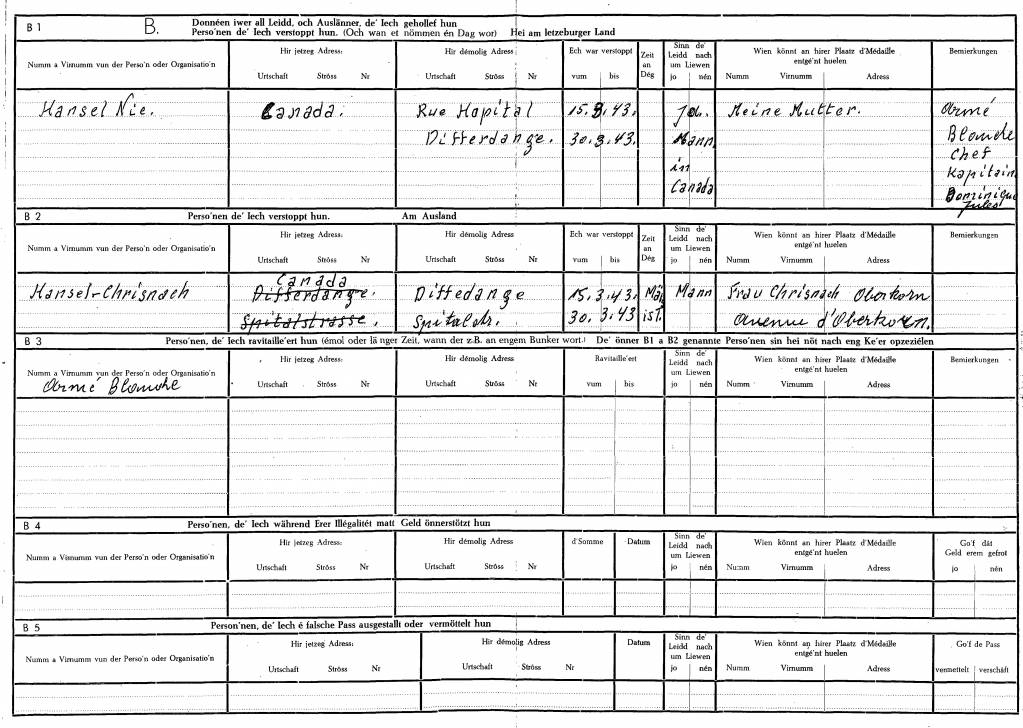 B 1
B.
Donnéen iwer all Leidd, och Auslänner, de' Iech gehollef hun
Perso'nen de' Iech verstoppt hun. (Och wan et nömmen én Dag wor) Hei am letzeburger Land
Numm a Virnumm vun der Perso'n oder Organisatio'n
Hir jetzeg Adress:
Urtschaft Ströss Nr
Hir démolig Adress
Urtschaft Ströss Nr
Ech war verstoppt
vum bis
Zeit
an
Dég
Sinn de'
Leidd nach
um Liewen
jo nén
Wien könnt an hirer Plaatz d'Médaille
entgé'nt huelen
Numm Virnumm Adress
Bemierkungen
Hansel Nic. Canada. Rue Hopital 15.3.43. Jo. Meine Mutter. Armé
Differdange. 30.3.43. Mann Blanche
in Chef
Canada Kapitain
Dominique
Jules
B 2
Perso'nen de' Iech verstoppt hun. Am Ausland
Numm a Virnumm vun der Perso'n oder Organisatio'n
Hir jetzeg Adress:
Urtschaft Ströss Nr
Hir démolig Adress
Urtschaft Ströss Nr
Ech war verstoppt
vum bis
Zeit
an
Dég
Sinn de'
Leidd nach
um Liewen
jo nén
Wien könnt an hirer Plaatz d'Médaille
entgé'nt huelen
Numm Virnumm Adress
Bemierkungen
Canada
Hansel-Chrisnach Differdange. Diffedange 15.3.43. Mann Frau Chrisnach Oberkorn
Spitalstrasse. Spitalstr. 30. 3.43 ist. Avenue d'Oberkorn.
B 3
Perso'nen, de' Iech ravitaille'ert hun (émol oder länger Zeit, wann der z.B. an engem Bunker wort.) De' önner B1 a B2 genannte Perso'nen sin hei nöt nach eng Ke'er opzeziélen
Numm a Virnumm vun der Perso'n oder Organisatio'n
Hir jetzeg Adress:
Urtschaft Ströss Nr
Hir démolig Adress
Urtschaft Ströss Nr
Ravitaille'ert
vum bis
Sinn de'
Leidd nach
um Liewen
jo nén
Wien könnt an hirer Plaatz d'Médaille
entgé'nt huelen
Numm Virnumm Adress
Bemierkungen
Armé Blanche
B 4
Perso'nen, de' Iech während Erer Illégalitét matt Geld önnerstötzt hun
Numm a Virnumm vun der Perso'n oder Organisatio'n
Hir jetzeg Adress:
Urtschaft Ströss Nr
Hir démolig Adress
Urtschaft Ströss Nr
d'Somme
Datum
Sinn de'
Leidd nach
um Liewen
jo nén
Wien könnt an hirer Plaatz d'Médaille
entgé'nt huelen
Numm Virnumm Adress
Go'f dät
Geld erem gefrot
jo nén
B 5
Person'nen, de' Iech é falsche Pass ausgestallt oder vermöttelt hun
Numm a Virnumm vun der Perso'n oder Organisatio'n
Hir jetzeg Adress:
Urtschaft Ströss Nr
Hir démolig Adress
Urtschaft Ströss Nr
Datum
Sinn de'
Leidd nach
um Liewen
jo nén
Wien könnt an hirer Plaatz d'Médaille
entgé'nt huelen
Numm Virnumm Adress
Go'f de Pass
vermettelt verschäft